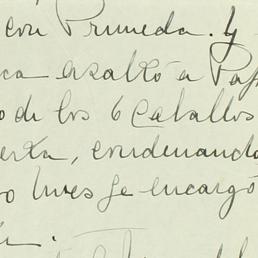 con Pruneda. y
ca asaltó a Pa
o de los 6 Caballos
erta, condenando
o lues se encargó